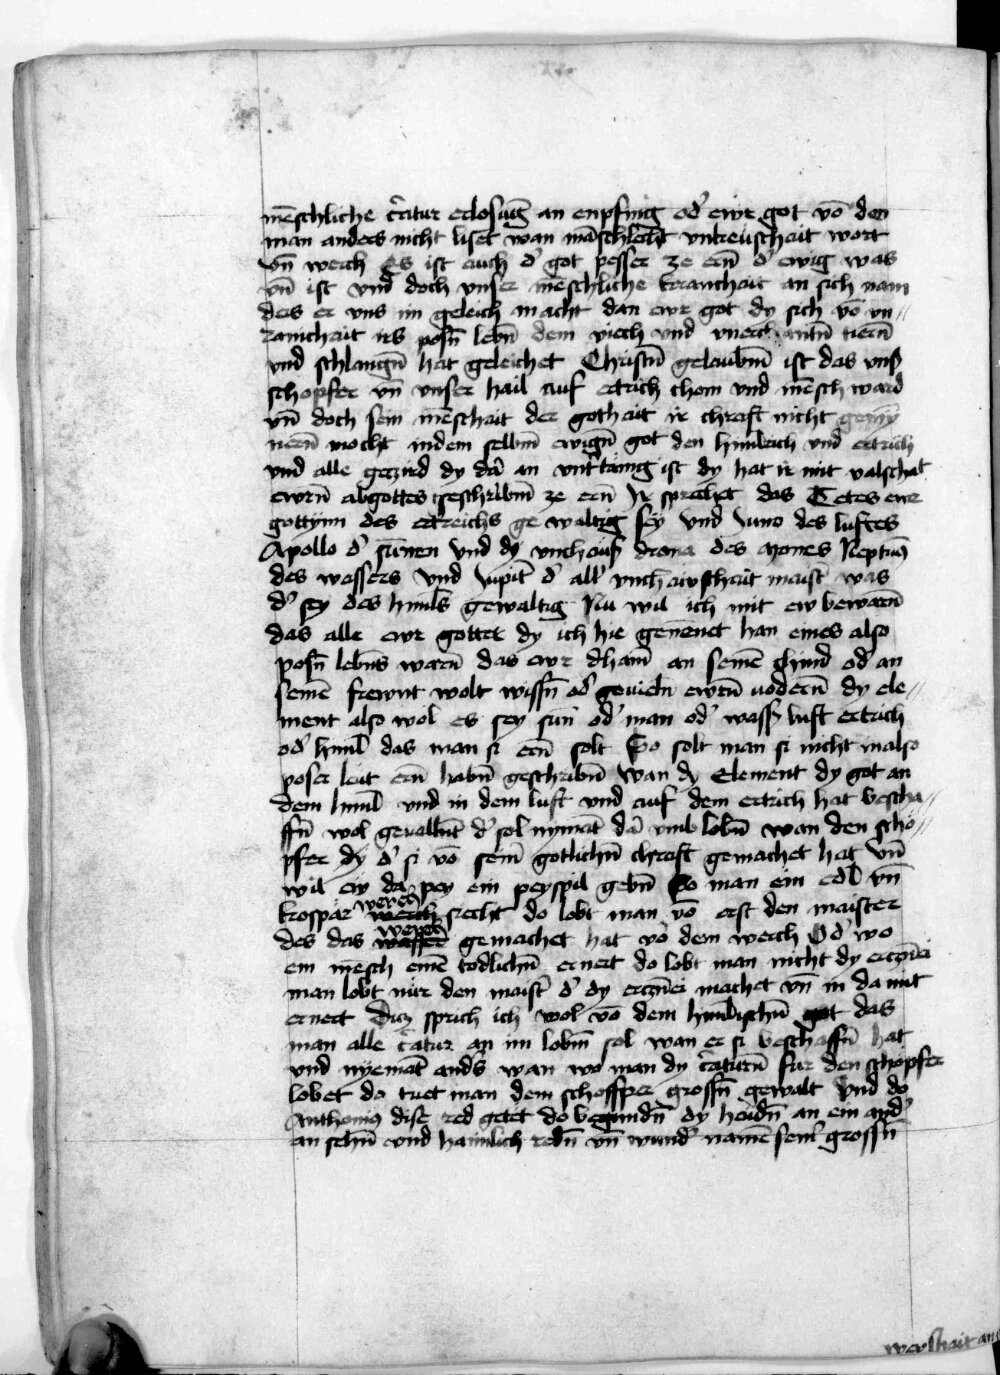 mēschliche c̄atur erlosūg an enpfing od' ewr got vō den
man anders nicht liset wan māschlecht vntreuschait wort
vn̄ werch Es ist auch d' got pesser ze ern̄ d' ewig was
vn̄ ist vnd doch vnser mēschliche kranchait an sich nam
des er vns im geleich macht dan ewr got dy sich vō vn//
rainichait irs posn̄ lebn̄ dem viech vnd tiern̄
vnd schlangn̄ hat geleichet Christn̄ gelaubm̄ ist das vns
schopfer vn̄ vnser hail auf ertrich chom vnd mēsch ward
vn̄ doch sein mēschait der gothait ir chraft nicht geiny
nern̄ mocht indem selbm̄ ewign̄ got den himlreich vnd ertrich
vnd alle geczird dy dar an vntt'tanig ist dy hat ir mit valschait
ewrn̄ abgottes geschribm̄ ze ern̄ Ir sprechet das Cetes ewr
gottynn des ertreichs ge waltig sey vnd Iuno des luftes
Apollo d' sūnen vnd dy vncheusch drana des mones Neptun9
des wassers vnd Iupit' d' all' vncheuschait maist' was
d' sey des himls gewaltig Nu wil ich mit ew bewarn̄
das alle ewr gotter dy ich hie genēnet han eines also
posn̄ lebns warn̄ das ewr dhain' an seinē chind od' an
seinē frewnt wolt wissn̄ od' geuieln̄ ewrn̄ uodern̄ dy ele//
ment also wol es sey sun̄ od' man od' wass' luft ertrich
od' himl das man si ern̄ solt So solt man si nicht in also
poser leut ern̄ habn̄ geschribm̄ Wan dy Element dy got an
dem himl vnd in dem luft vnd auf dem ertrich hat bescha//
ffn̄ wol geuallent d' sol nymāt dar vmb lobn̄ wan den scho//
pfer dy d' si vō sein' gotlichn̄ chraft gemachet hat Vn̄
wil ew da pey ein peyspil gebn̄ So man ein edl vn̄
krospar werch siecht do lobt man vō erst den maister
des das werch gemachet hat vō dem werch Od' wo
ein mēsch einē todlichn̄ ernert do lobt man nicht dy ercznei
man lobt nur den maist' d' dy ercznei machet vn̄ in da mit
ernert Dicz sprich ich wol vō dem himlischn̄ got das
man alle c̄atur an im lobm̄ sol wan er si beschaffn̄ hat
vnd nyemāt and's wan wo man dy c̄aturn̄ fur den schopfer
lobet do tuet man dem schoffper grossn̄ gewalt Vnd do
Anthoni9 dise red getet do begundn̄ dy heidn̄ an ein and'
an sehn̄ vnd haimlich redn̄ vn̄ wund' namē sein' grossn̄
weyshait an